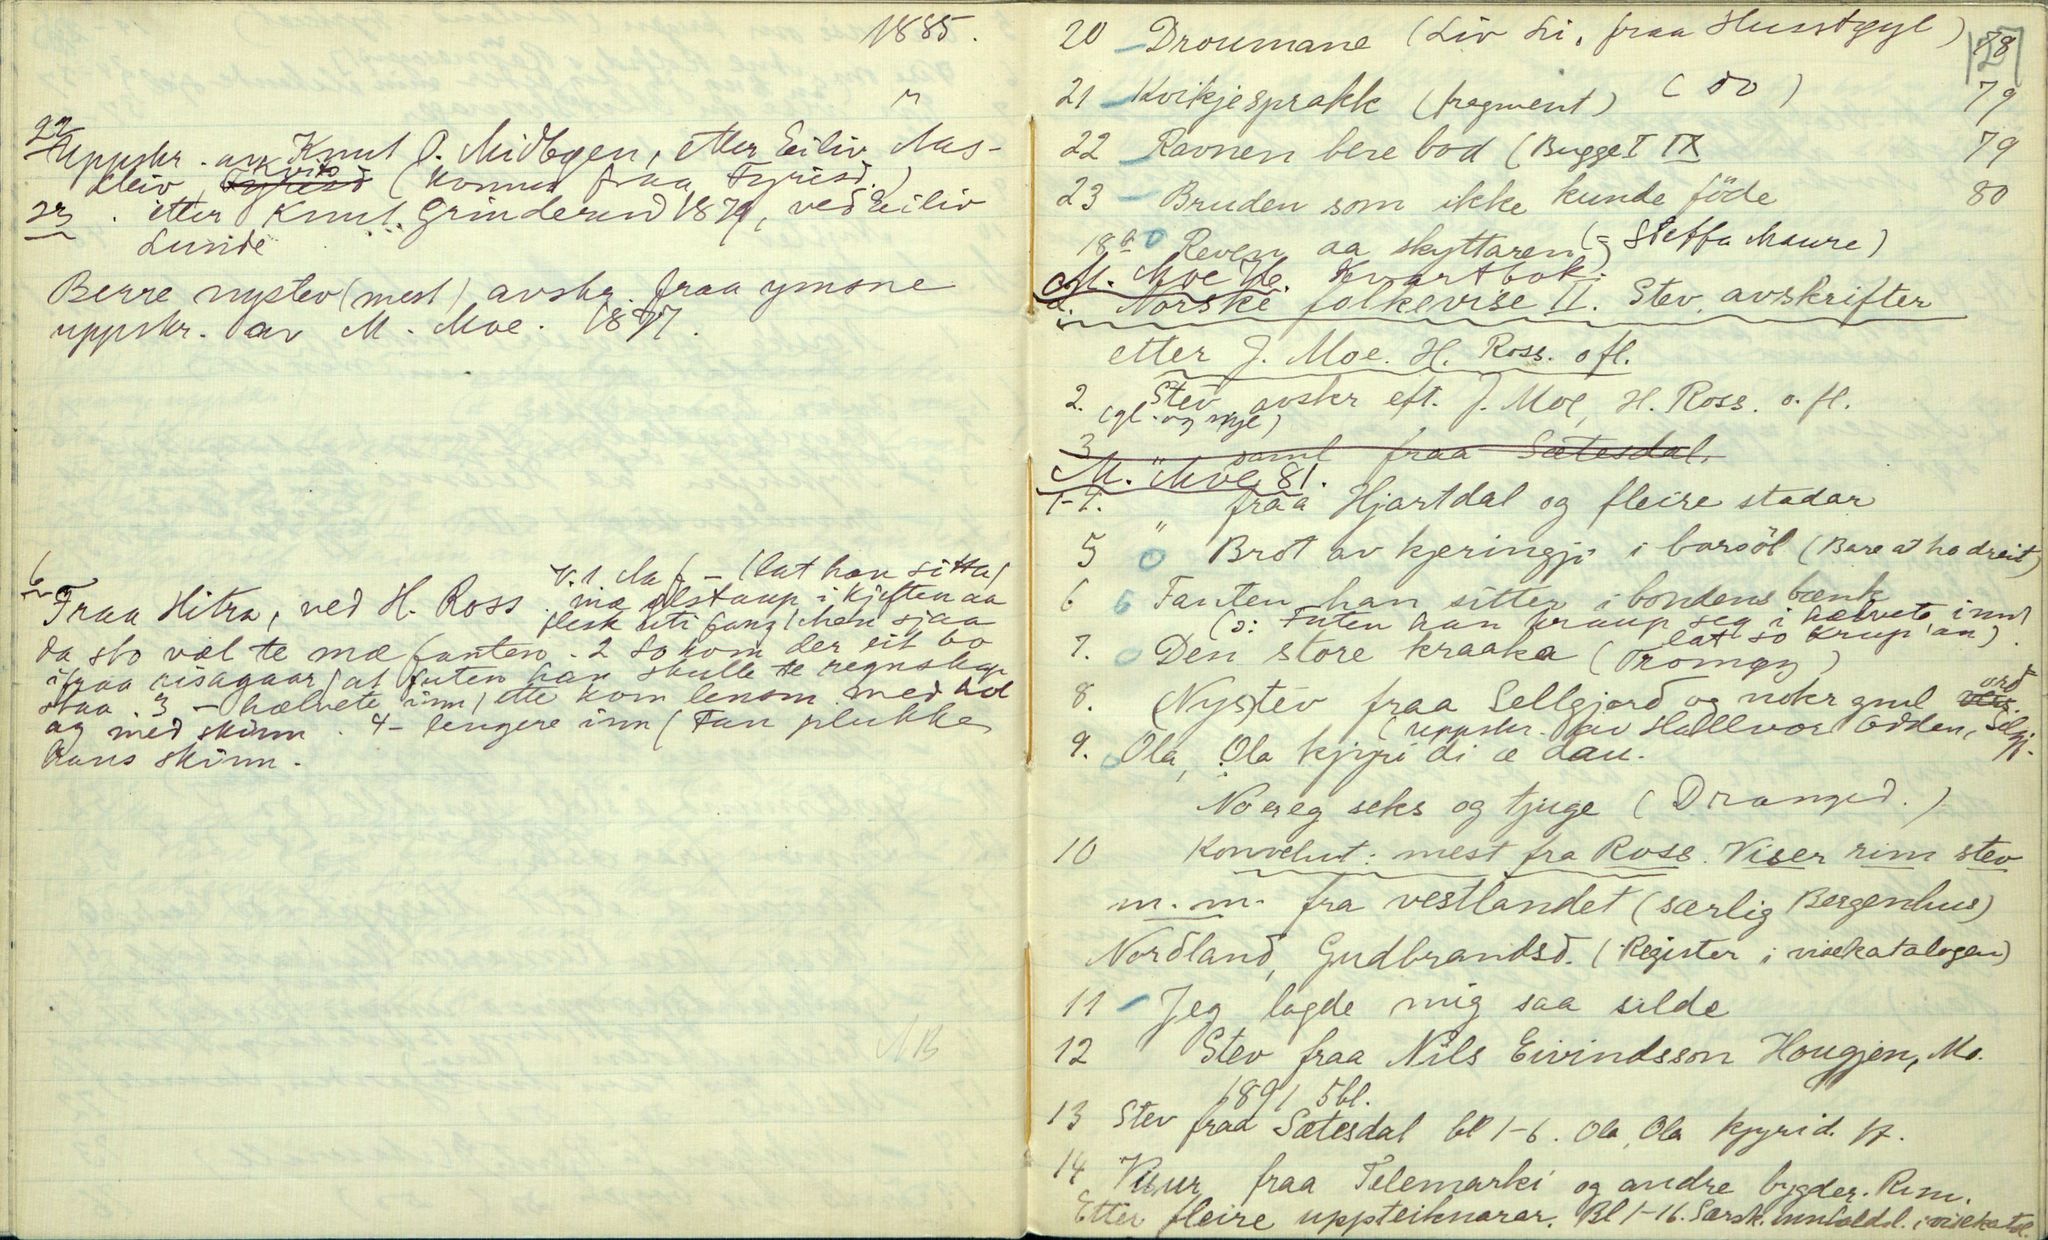 1885.
"
22
Uppskr. av Knut O. Midbøen, etter Eiliv Aas-
kleiv, Kvits (Konna fraa Fyrisd.)
23 . etter Knut Grinderud 1879, ved Eiliv
Lunde
Berre nystev (mest) avskr. fraa ymsne
uppskr. av M. Moe. 1877.
6
Fraa Hitra, ved H. Ross. V. 1 Aa f – (lat han sitta)
mæ ølstaup i kjeften aa
flesk uti fang / men sjaa
da sto væl te mæ fanten. 2 So kom der eit bo
ifraa risagaar / at futen han skulle te regnskap
staa. 3 – hælvete inn / ette kom lensm. med hol
og med skinn. 4 – lengere inn / Fan plukka
hans skinn.
NB
20 – Draumane (Liv Li, fraa Hustyyl) 78
27
21 – Kvikjesprakk (fragment) (do) 79
22 – Ravnen bere bod (Bugge I IX 79
23 – Bruden som ikke kunde föde 80
18 a o Reven aa skyttaren (= Steffa Maure)
M. Moe No. Kvartbok:
1. Norske folkevise II. Stev, avskrifter
etter J. Moe. H. Ross. ofl.
2. Stev avskr eft. J. Moe, H. Ross. o. fl.
(gl. og nye)
3 " saml fraa Sætesdal.
M. Moe 81.
1-4. fraa Hjartdal og fleire stadar
5 " o Brot av kjeringji i barsöl (Bare a ho dreit)
6 o Fanten han sitter i bondens bænk
(ɔ: Futen han kraup seg i hælvete inn /
lat so krup' an).
7. o Den store kraaka (Tromøy)
8. (Ny)stev fraa Sellgjord og nokr gml ord
(uppskr. av Hallvor Odden, Selgj.
9. o Ola, Ola kjyri di æ dau.
No er eg seks og tjuge (Dranged.)
10 Konvolut: mest fra Ross. Viser rim stev
m. m. fra vestlandet (særlig Bergenhus)
Nordland, Gudbrandsd. (Register i visekatalogen)
11 – Jeg lagde mig saa silde
12 Stev fraa Nils Eivindsson Hougjen, Mo.
1891 5bl.
13 Stev fraa Sætesdal bl 1-6. Ola, Ola kjyri d. 17.
14 Visur fraa Telemarki og andre bygder. Rim.
Etter fleire uppteiknarar. Bl 1-16. Særsk. innhaldsl. i visekatal.